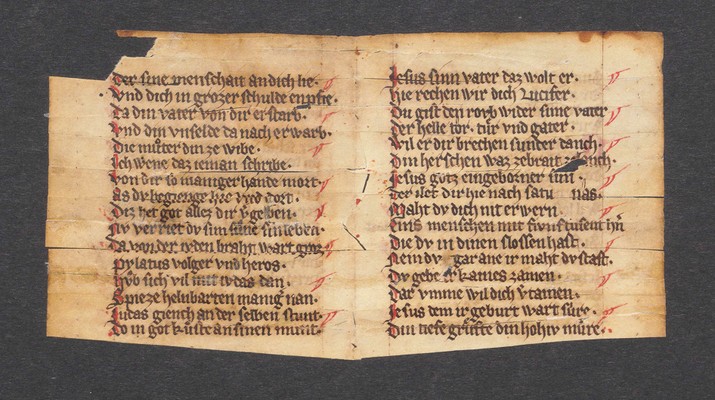 Der sine menschait an dich he.
Vnd dich in grozer schulde enpfie.
Da din vater von dir erstarb.
Vnd din vnselde da nach erwarb.
Die můter din ze wibe.
Ich wene daz ieman schribe.
Von dir so maniger hande mort.
as dv begienge hie vnd dort.
Diz het got allez dir v̾geben.
v̾riet dv sun sin leben.
Da von der ivden braht wart groz.
Pylatus volger vnd heros.
Hůb sich vil das dan.
Spieze helnbarten manig̾ nan.
Judas giench an der selben stunt.
Do in got kuste an sinen munt.
Jesus sinn vater daz wolt er.
hie rechen wir dich Lucifer.
Du gist den rovb wider sine vater
Der helle tor. tur vnd gater.
Wil er dir brechen sunder danch.
Din herschen waz zebrait
Jesus gotz eingeborner sun
Der let dir hie nach satu nas.
Maht dv dich nit erwern.
Eins menschen mit
Die dv in dinen slossen hast.
Nein dv gar ane ir maht dv stast.
Dv gebe kaines zamen.
Dar vmme wil dich v̾tamen.
Jesus dem ir geburt wart sure.
Din tiefe gruffte din holiv mure.